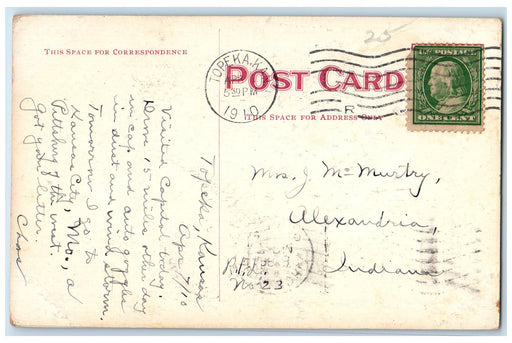 THIS SPACE FOR CORRESPONDENCE
POST CARD
THIS SPACE FOR ADDRESS ONLY
25
TOPEKA, KA
5 30 PM
1910
R
U.S. POSTAGE
ONE CENT
Topeka, Kansas
Apr 7/10
Visited Capital today.
Drove 15 miles other day
in cap and auto goggles
in dust and wind storm.
Tomorrow I go to
Kansas City, Mo., a
Pittsburg of the west.
Got your letter.
Chas
Mrs. J. McMurtry,
Alexandria,
Indiana
R.F.D.
No 23